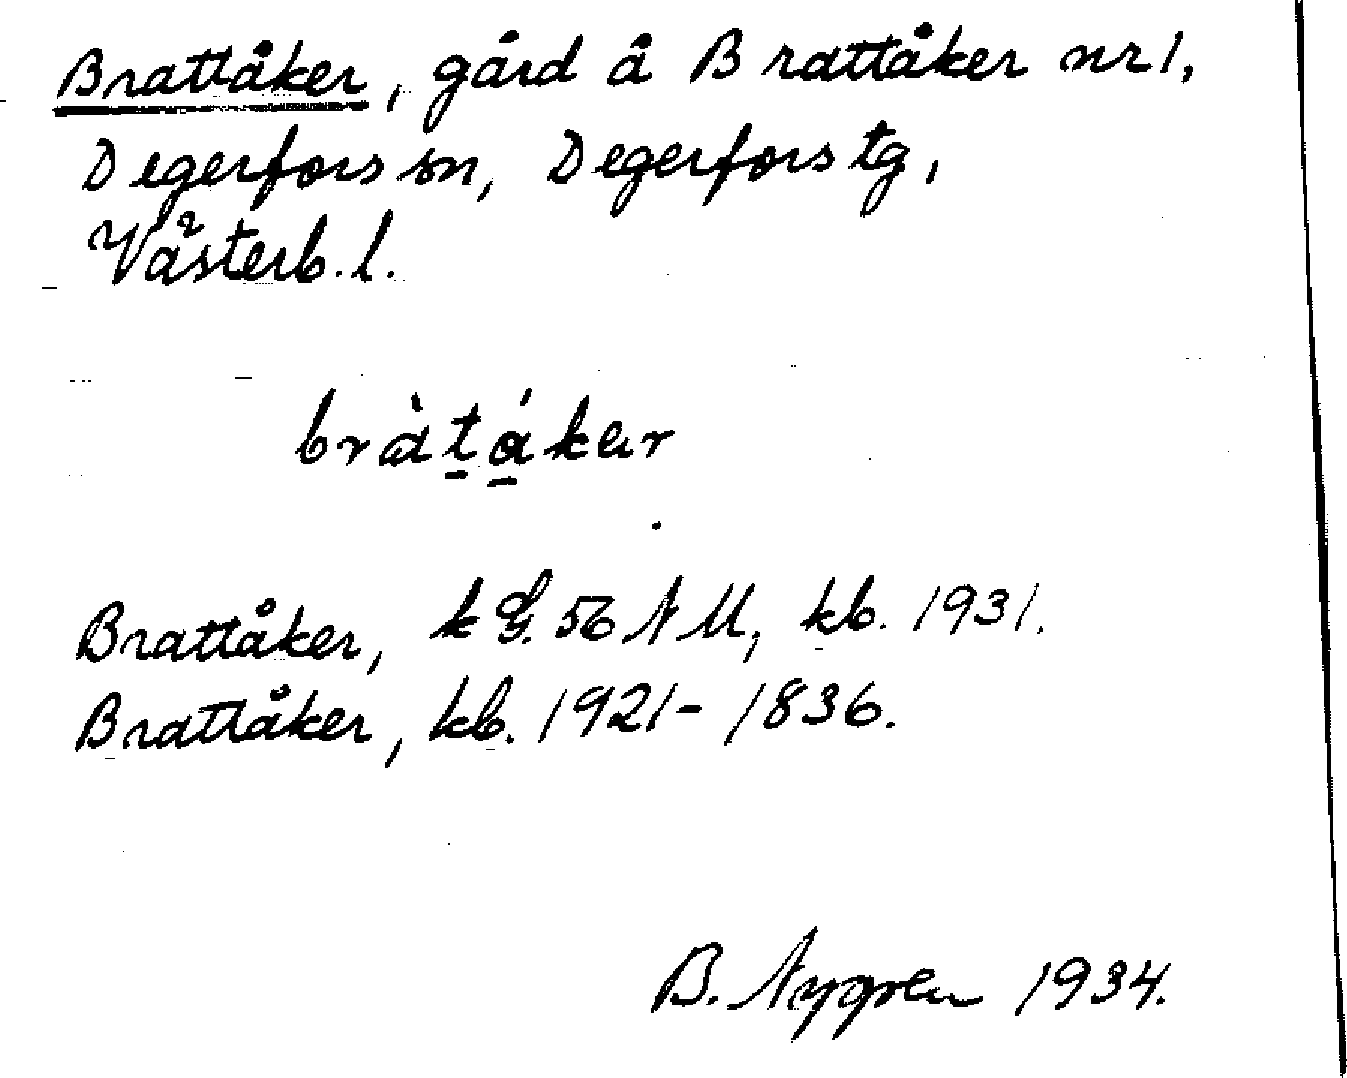 Brattåker, gård å Brattåker nr 1,
Degerfors sn, Degerfors tg,
Västerb. l.
bràt̲á̲kər
Brattåker, k G. 56 N M, kb. 1931.
Brattåker, kb. 1921-1836.
B. Nygren 1934.